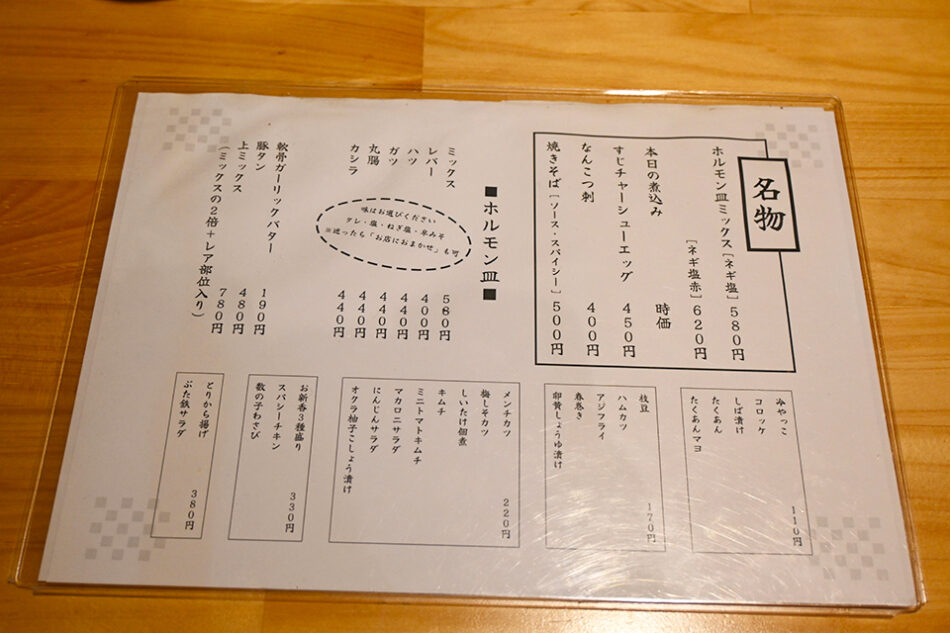 名物
ホルモン皿ミックス［ネギ塩］580円
［ネギ塩赤］620円
本日の煮込み 時価
すじチャーシューエッグ 450円
なんこつ刺 400円
焼きそば［ソース・スパイシー］500円
■ホルモン皿■
ミックス 580円
レバー 400円
ハツ 440円
ガツ 440円
丸腸 440円
カシラ 440円
味はお選びください
タレ・塩・ねぎ塩・辛みそ
※迷ったら「お店におまかせ」も可
軟骨ガーリックバター 190円
豚タン 480円
上ミックス 780円
（ミックスの2倍＋レア部位入り）
冷やっこ
コロッケ
しば漬け
たくあん
たくあんマヨ
110円
枝豆
ハムカツ
アジフライ
春巻き
卵黄しょうゆ漬け
170円
メンチカツ
梅しそカツ
しいたけ佃煮
キムチ
ミニトマトキムチ
マカロニサラダ
にんじんサラダ
オクラ柚子こしょう漬け
220円
お新香3種盛り
スパシーチキン
数の子わさび
330円
とりから揚げ
ぶた鉄サラダ
380円